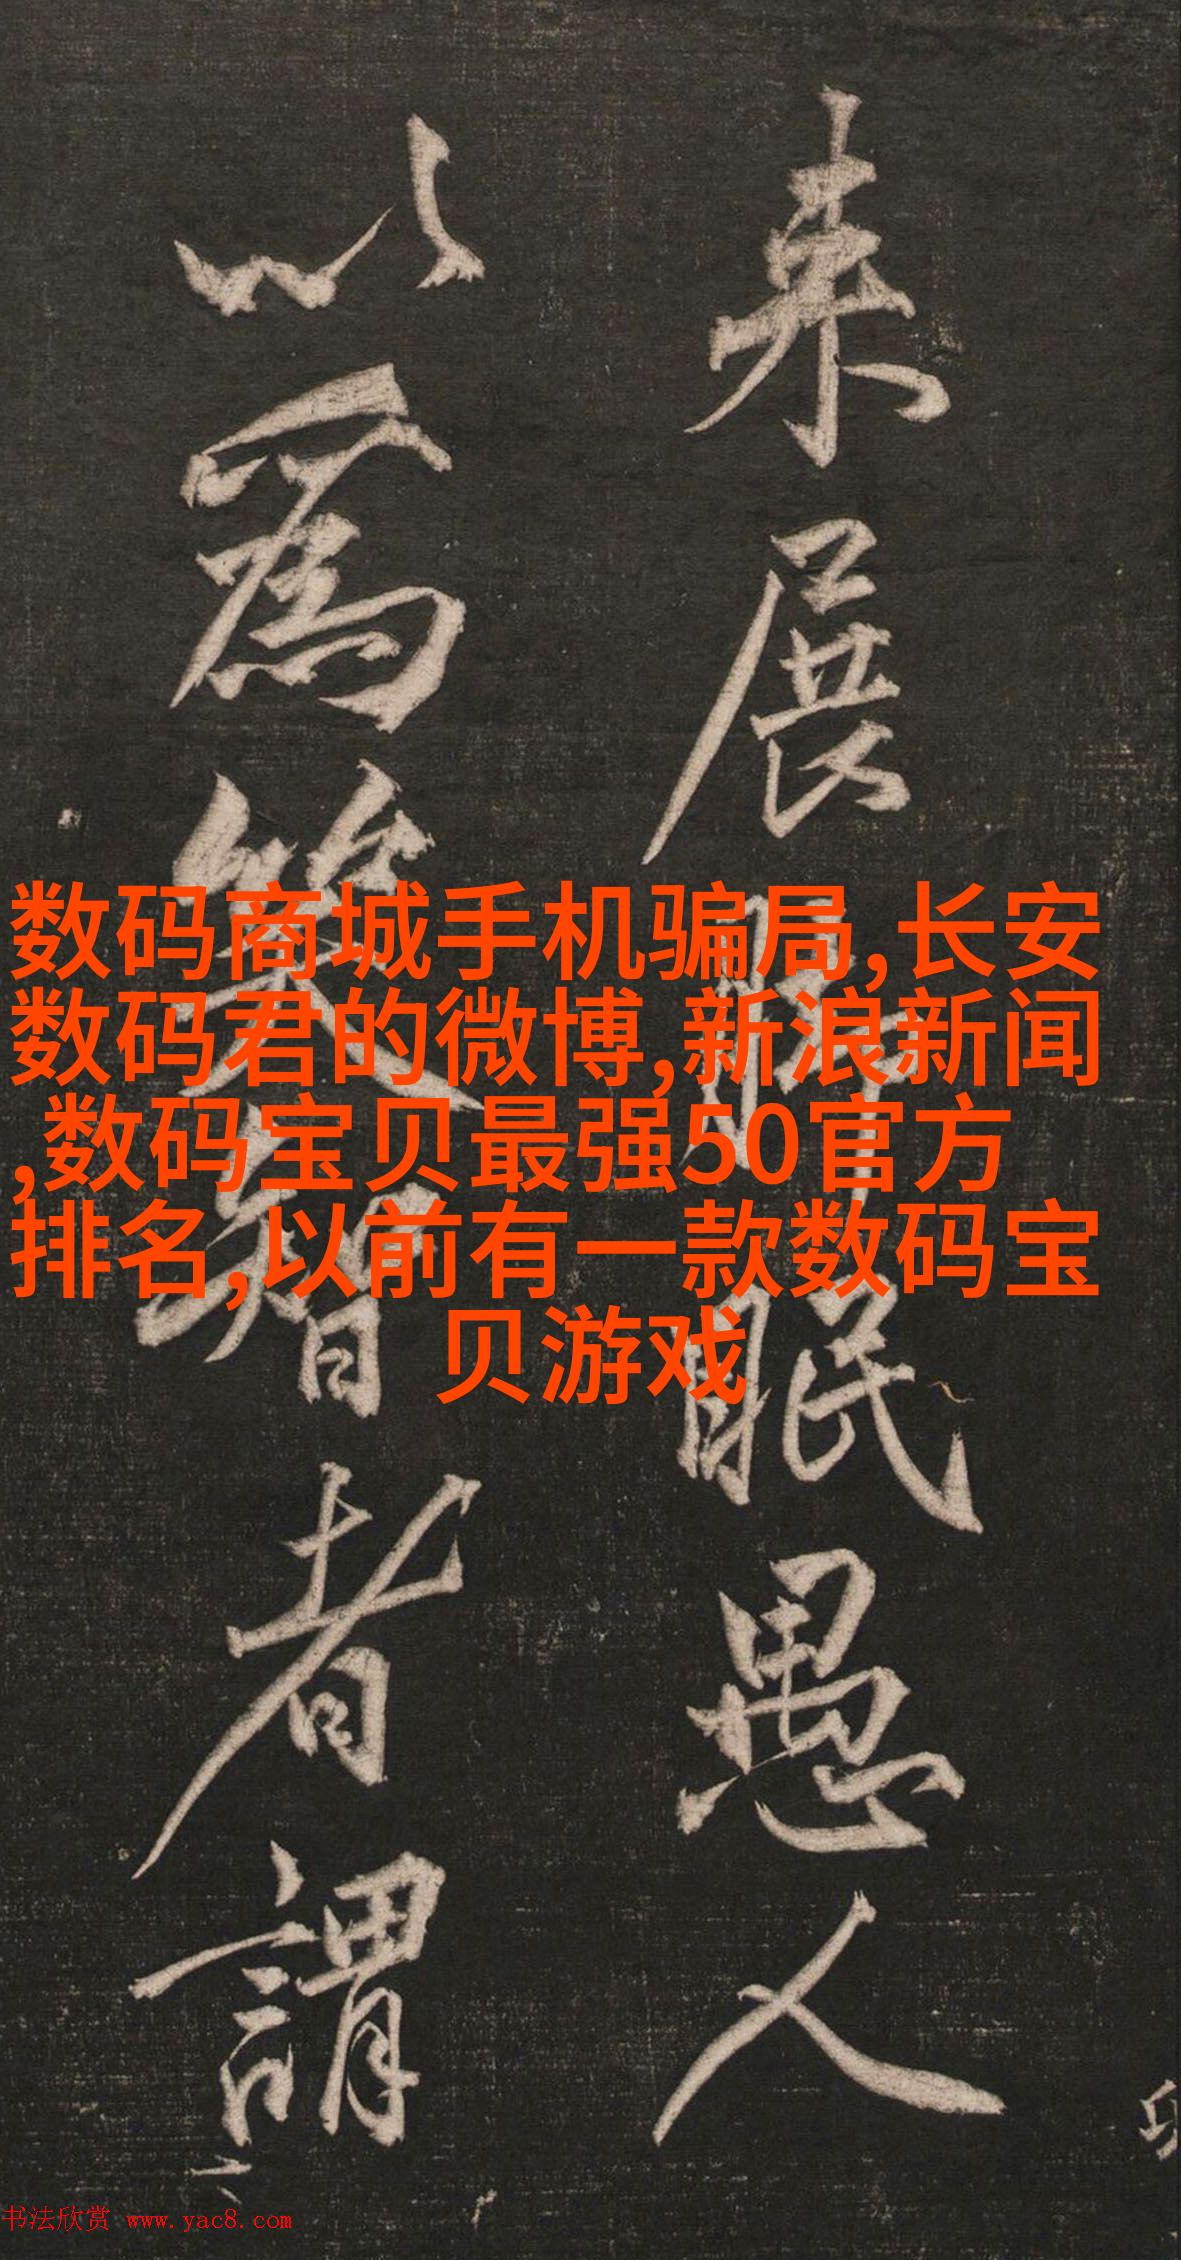 来展脚眠愚人
以為笑智者謂
数码商城手机骗局,长安
数码君的微博,新浪新闻
,数码宝贝最强50官方
排名,以前有一款数码宝
贝游戏
书法欣赏 www.yac8.com